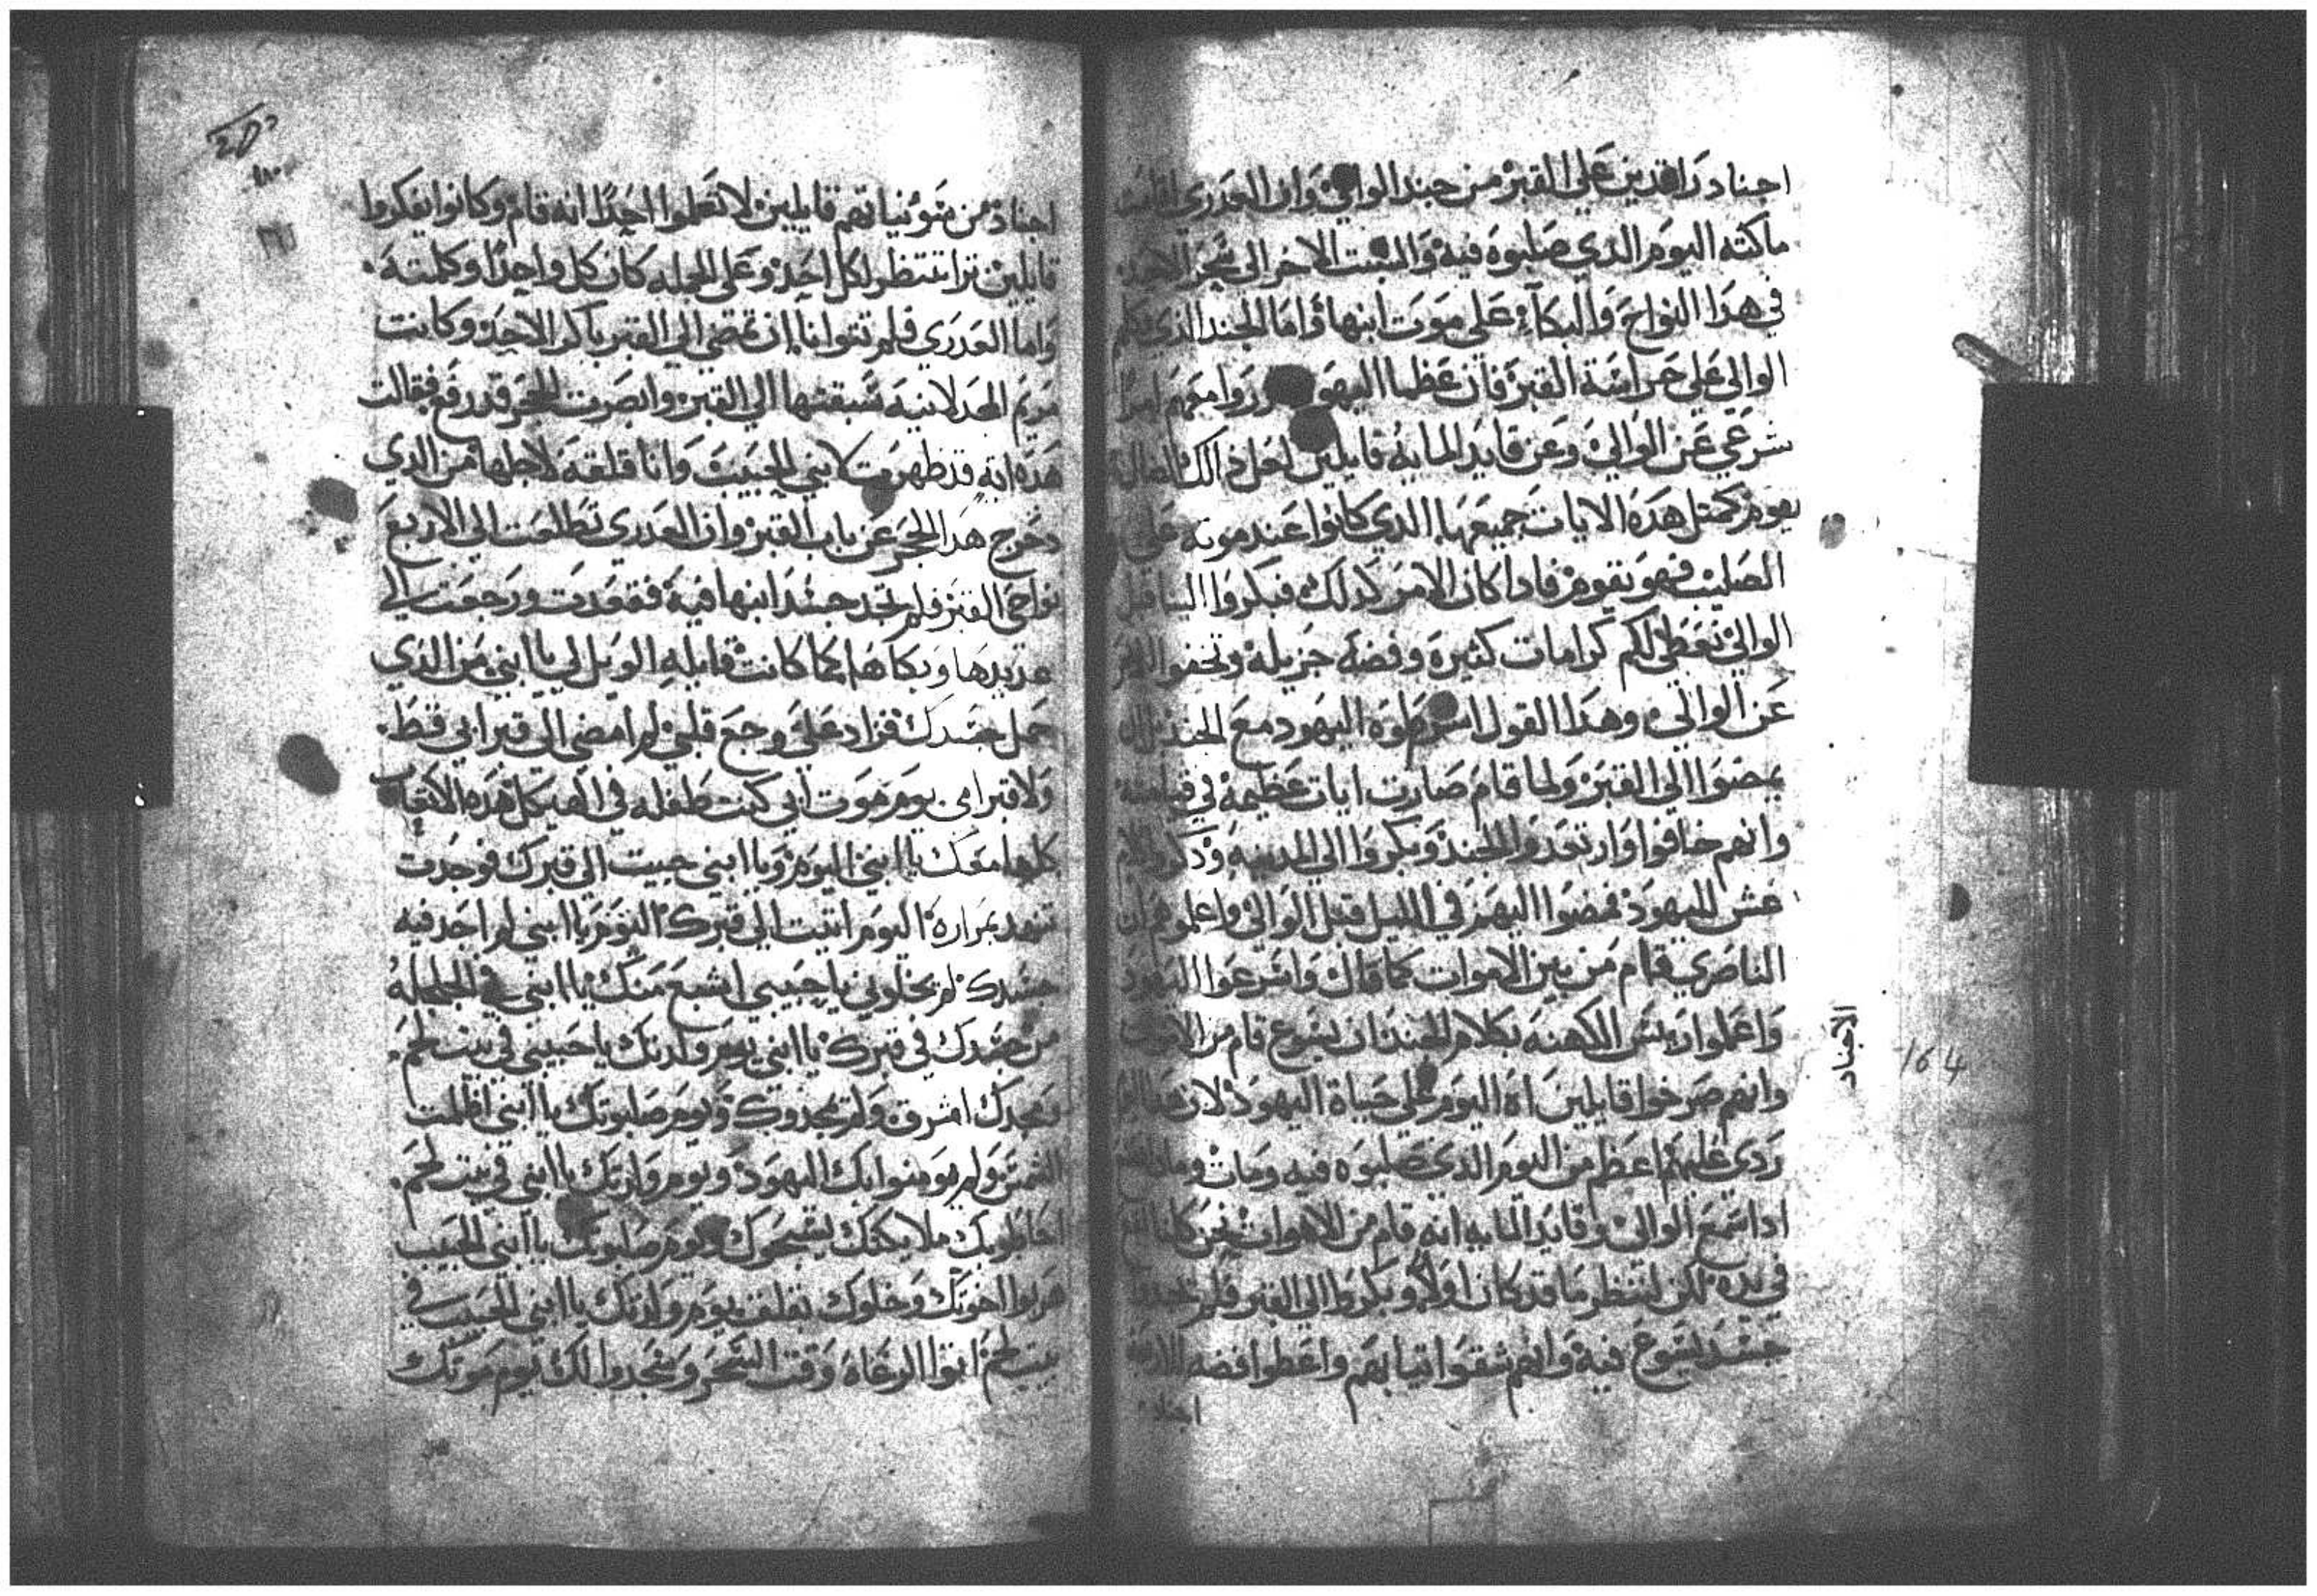 اجناد راقدين علي القبر من جند الوالي وان العدري كانت
ماكته اليوم الدي صلبوه فيه والسبت الاخر الي سحر الاحد
في هدا النواح والبكآء علي موت ابنها واما الجند الدي
الوالي علي حراسة القبر فان عظما اليهود قرروا معهم امرا
شرعي عن الوالي وعن قايد المايه قايلين لعل دالك الضال
يقوم كمتل هده الايات جميعها الدي كانوا عند موته علي
الصليب فهو يقوم فادا كان الامر كدلك فبكروا الينا قبل
الوالي نعطي لكم كرامات كثيرة وفضة جزيلة وتخفوا الامر
عن الوالي وهدا القول اشرطوه اليهود مع الجند
يمضوا الي القبر ولما قام صارت ايات عظيمة في قيامته
وانهم خافوا وارتعدوا الجند وبكروا الي المدينه
عش لليهود فمضوا اليهم في الليل قبل الوالي واعلموهم ان
الناصري قام من بين الاموات كما قال واسرعوا اليهود
واعلموا ريس الكهنه بكلام الجند ان يسوع قام من الاموات
وانهم صرخوا قايلين اه اليوم علي حياة اليهود لان هدا
ردي عليهم اعظم من اليوم الدي صلبوه فيه ومات
ادا سمع الوالي وقايد المايه انه قام من الاموات نحن كلنا نقع
في يده لكن لننظر ما قد كان اولا وبكروا الي القبر فلم يجدوا
جسد يسوع فيه وانهم شقوا تيابهم واعطوا فضه للاربعة
اجناد
الاجناد
164
اجناد من قايلين لا تعلموا احدا انه قام وكانوا يفكروا
قايلين ترا تنتظر لكل احد وعلي الجمله كان كل واحدا وكلمته
واما العدري فلم تتوانا ان تمضي الي القبر باكر الاحد وكانت
مريم المجدلانيه سبقتها الي القبر وابصرت الحجر قد رفع فقالت
هده ايه قد ظهرت لابني الحبيب وانا قلقه لاجلها من الدي
دحرج هدا الحجر عن باب القبر وان العدري تطلعت الي الاربع
نواحي القبر فلم تجد جسد ابنها فيه فقعدت ورجعت الي
عديدها وبكاها كما كانت قايله الويل لي يا ابني من الدي
حمل جسدك فزاد علي وجع قلبي لم امضي الي قبر ابي قط
ولا قبر امي يوم موت ابي كنت طفله في الهيكل هده الاتعاب
كلها معك يا ابني اليوم ويا ابني جيت الي قبرك فوجدت
تنهد بمرارة اليوم اتيت الي قبرك اليوم يا ابني لم اجد فيه
جسدك لم يخلوني يا حبيبي اشبع منك يا ابني في الجلجله
من جسدك في قبرك يا ابني يوم ولدتك يا حبيبي في بيت لحم
مجدك اشرق ولم يجدوك ويوم صلبوتك يا ابني اظلمت
الشمس ولم يومنوا بك اليهود ويوم ولدتك يا ابني في بيت لحم
احاطوا بك ملايكتك يسبحوك ويوم صلبوتك يا ابني الحبيب
هربوا اخوتك وخلوك يوم ولدتك يا ابني الحبيب في
بيت لحم اتوا الرعاه وقت السحر وسجدوا لك يوم موتك